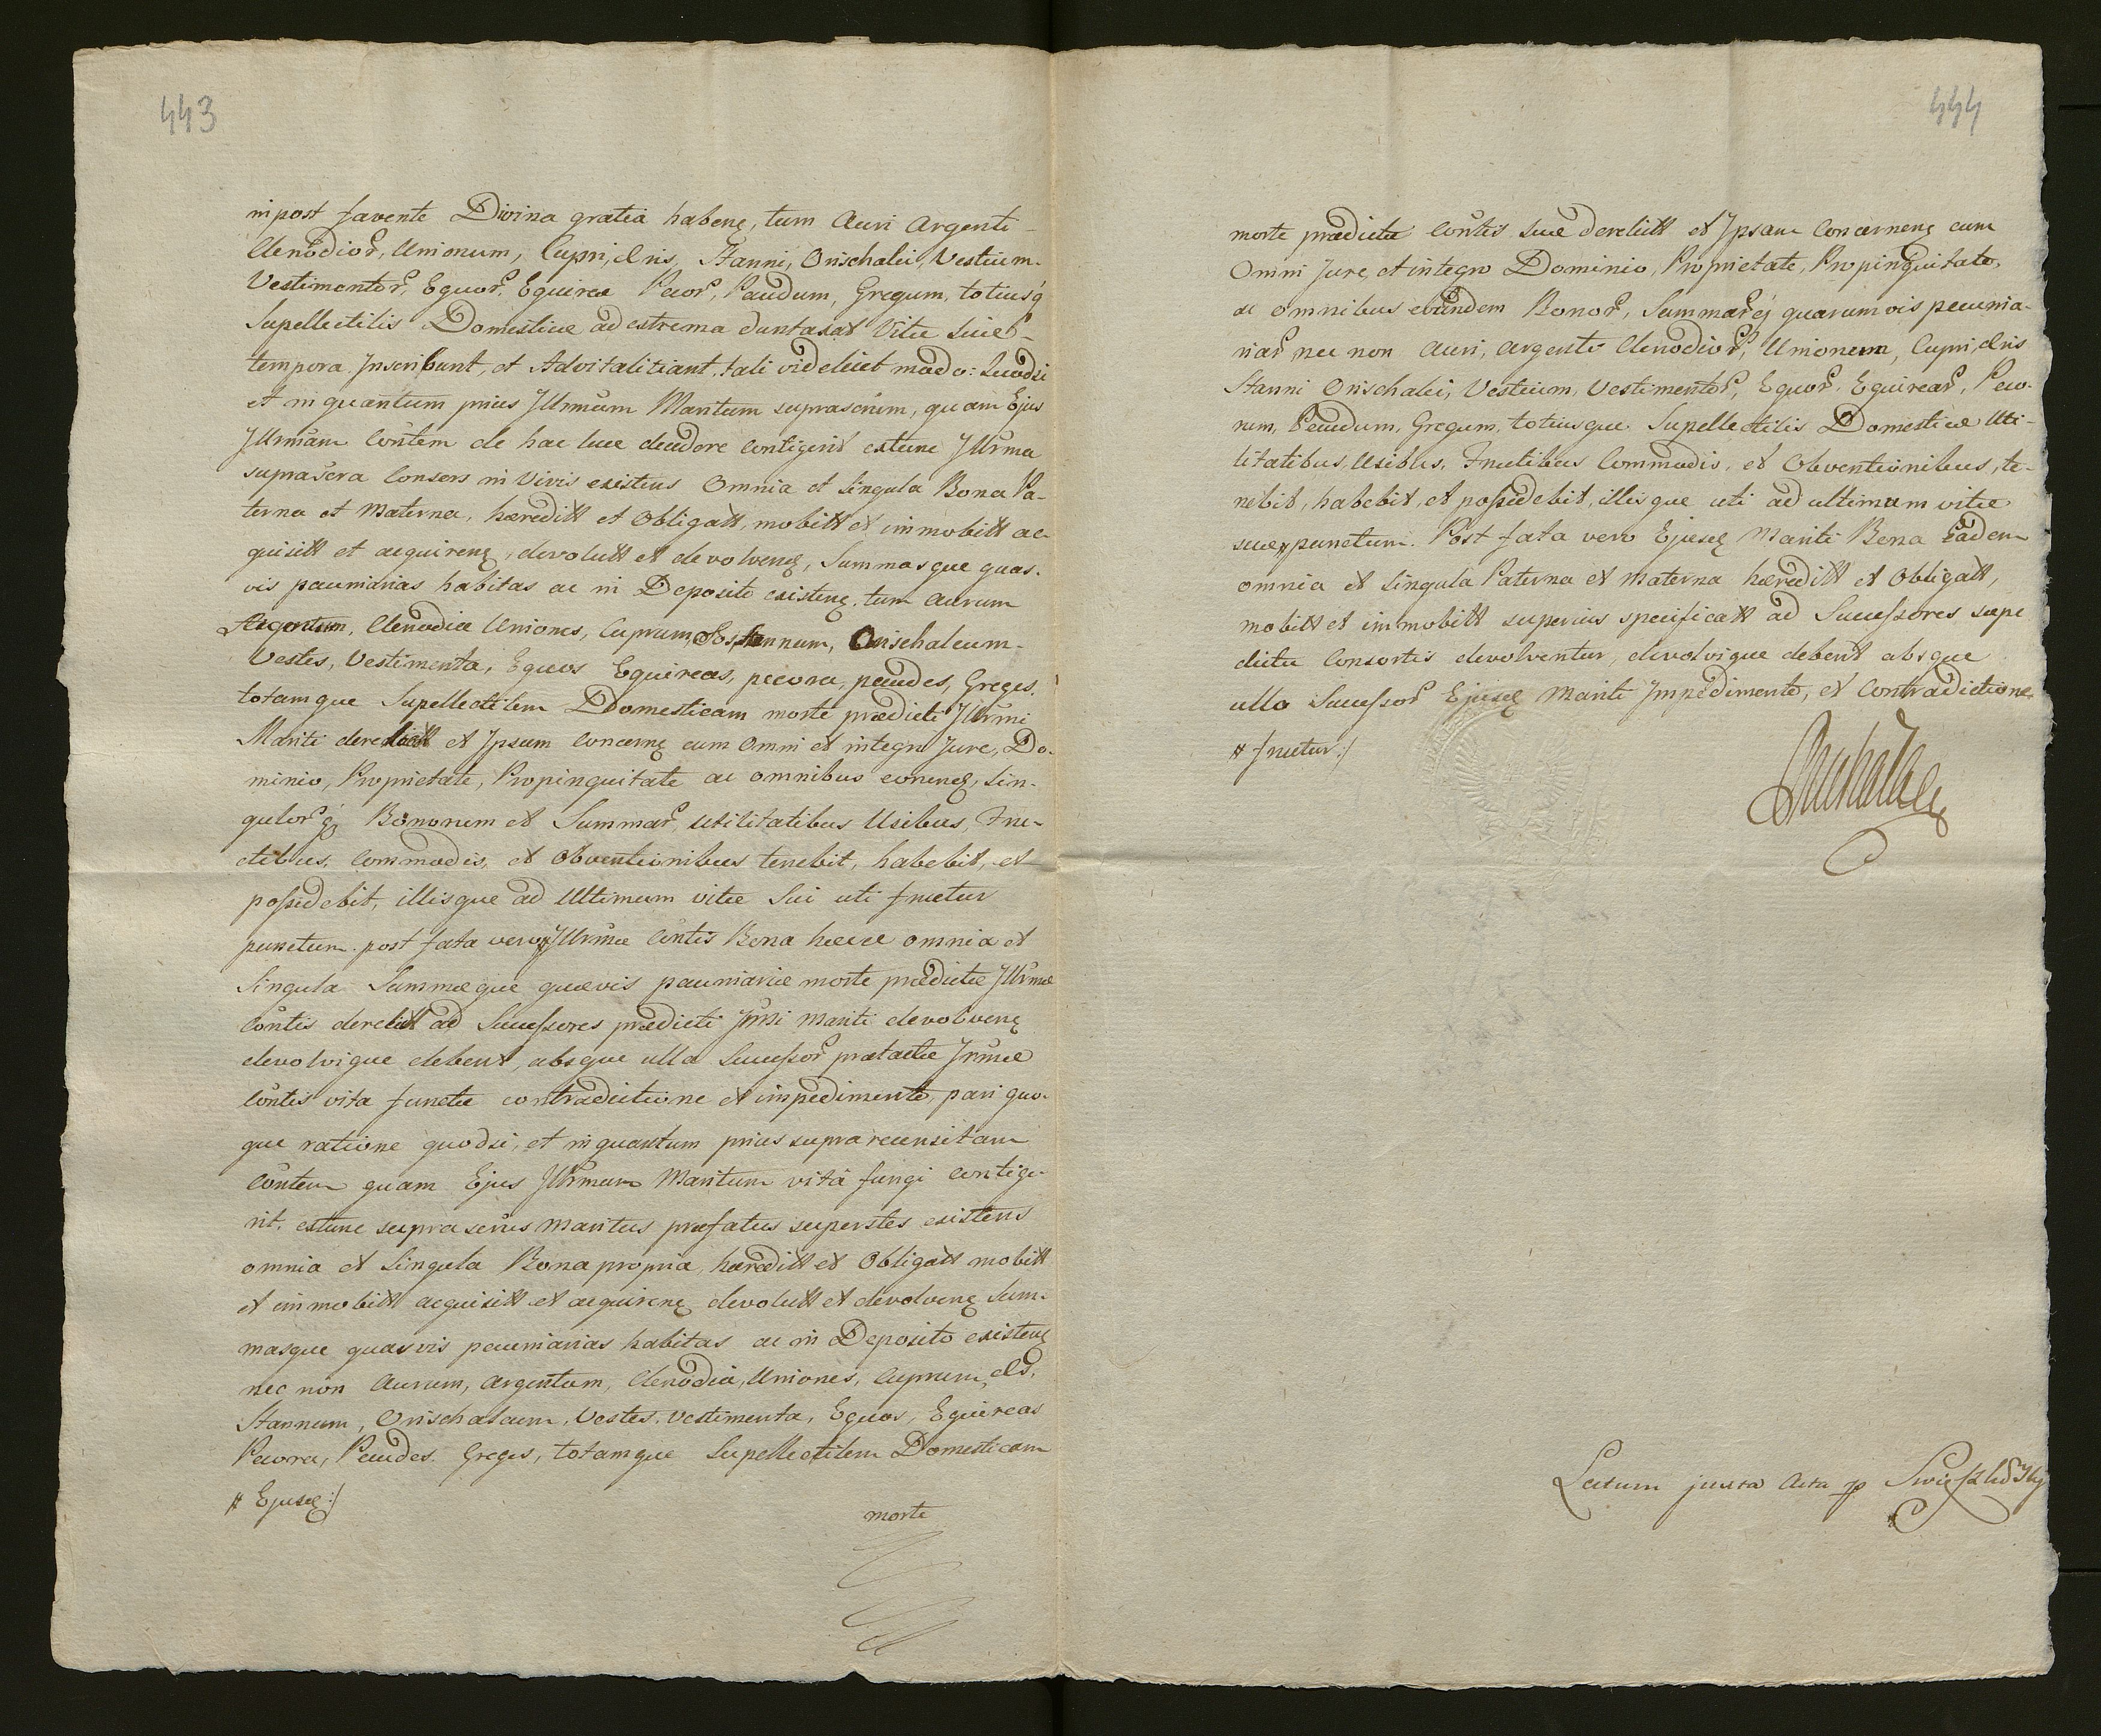 443
inpost favente Divina gratia habenę, tum Auri Argenti
Clenodior, Unionum, Cupri, Æris, Stanni, Orischalci, Vestium
Vestimentor, Equor, Equirea Pecor, Pecudum, Gregum, totiusq
Supellectilis Domesticæ ad extrema duntaxat Vitæ Suæ
tempora Inscribunt, et Advitalitiant, tali videlicet modo: Quodsi
et in quantum prius Jllrmum Maritum suprascrum, quam Ejus
Jllrmam Contem de hac luce decedere contigerit extunc Jllrma
suprascra Consors in Vivis existens Omnia et Singula Bona Pa-
terna et Materna, hæreditt et Obligatt, mobilt et immobilt ac-
quisitt et acquirenę, devolutt et devolvenę, Summasque quas-
vis pecuniarias habitas ac in Deposito existenę, tum Aurum
Argentum, Clenodia Uniones, Cuprum, Æs, Stannum, Orischalcum
Vestes, Vestimenta, Equos Equireas, pecora, pecudes, Greges,
totamque Supellectilem Domesticam morte prædicti Jllrmi
Mariti derelictt et Ipsum concernę cum Omni et integro Jure, Do-
minio, Proprietate, Propinquitate ac omnibus eorundę, Sin-
gulorq Bonorum et Summar, Utilitatibus Usibus, Fru-
ctibus, Commodis, et Obventionibus tenebit, habebit, et
possidebit, illisque ad Ultimum vitæ Sui uti fruetur
punctum. post fata vero # Jllrmæ Contis Bona hæcce omnia et
Singula Summæque quævis pecuniariæ morte prædictæ Jllrmæ
Contis derelictt ad Successores prædicti Jllrmi Mariti devolvenę
devolvique debent, absque ulla Successor prætactæ Jllrmæ
Contis vita functæ contradictione et impedimento, pari quo-
que ratione quodsi, et inquantum prius supra recensitam
Contem quam Ejus Jllrmum Maritum vitâ fungi contige-
rit, extunc suprascrus Maritus præfatus superstes existens
omnia et Singula Bona propria, hæreditt et Obligatt mobilt
et immobilt acquisitt et acquirenę devolutt et devolvenę Sum-
masque quasvis pecuniarias habitas ac in Deposito existenę
nec non Aurum, Argentum, Clenodia, Uniones, Cuprum, Æs,
Stannum, Orischalcum, Vestes, Vestimenta, Equos, Equireas
Pecora, Pecudes, Greges, totamque Supellectilem Domesticam
# Ejusdę :/
morte
444
morte prædictæ Contis Suæ derelictt et Ipsam Concernenę cum
Omni Jure, et integro Dominio, Proprietate, Propinquitate,
ac omnibus eorundem Bonor, Summarq quarumvis pecunia-
riar nec non Auri, Argenti Clenodior, Unionum, Cupri, Æris
Stanni Orischalci, Vestium, Vestimentor, Equor, Equirear, Peco-
rum, Pecudum, Gregum, totiusque Supellectilis Domesticæ Uti-
litatibus, Usibus, Fructibus Commodis, et Obventionibus, te-
nebit, habebit, et possidebit, illisque uti ad ultimum vitæ
suæ # punctum. Post fata vero Ejusdę Mariti Bona Eadem
omnia et Singula Paterna et Materna hæreditt et Obligatt,
mobilt et immobilt superius specificatt ad Successores sæpe
dictæ Consortis devolventur, devolvique debent absque
ullo Successor Ejusdę Mariti Impedimento, et Contradictione
# fruetur :/
Lectum juxta Acta p